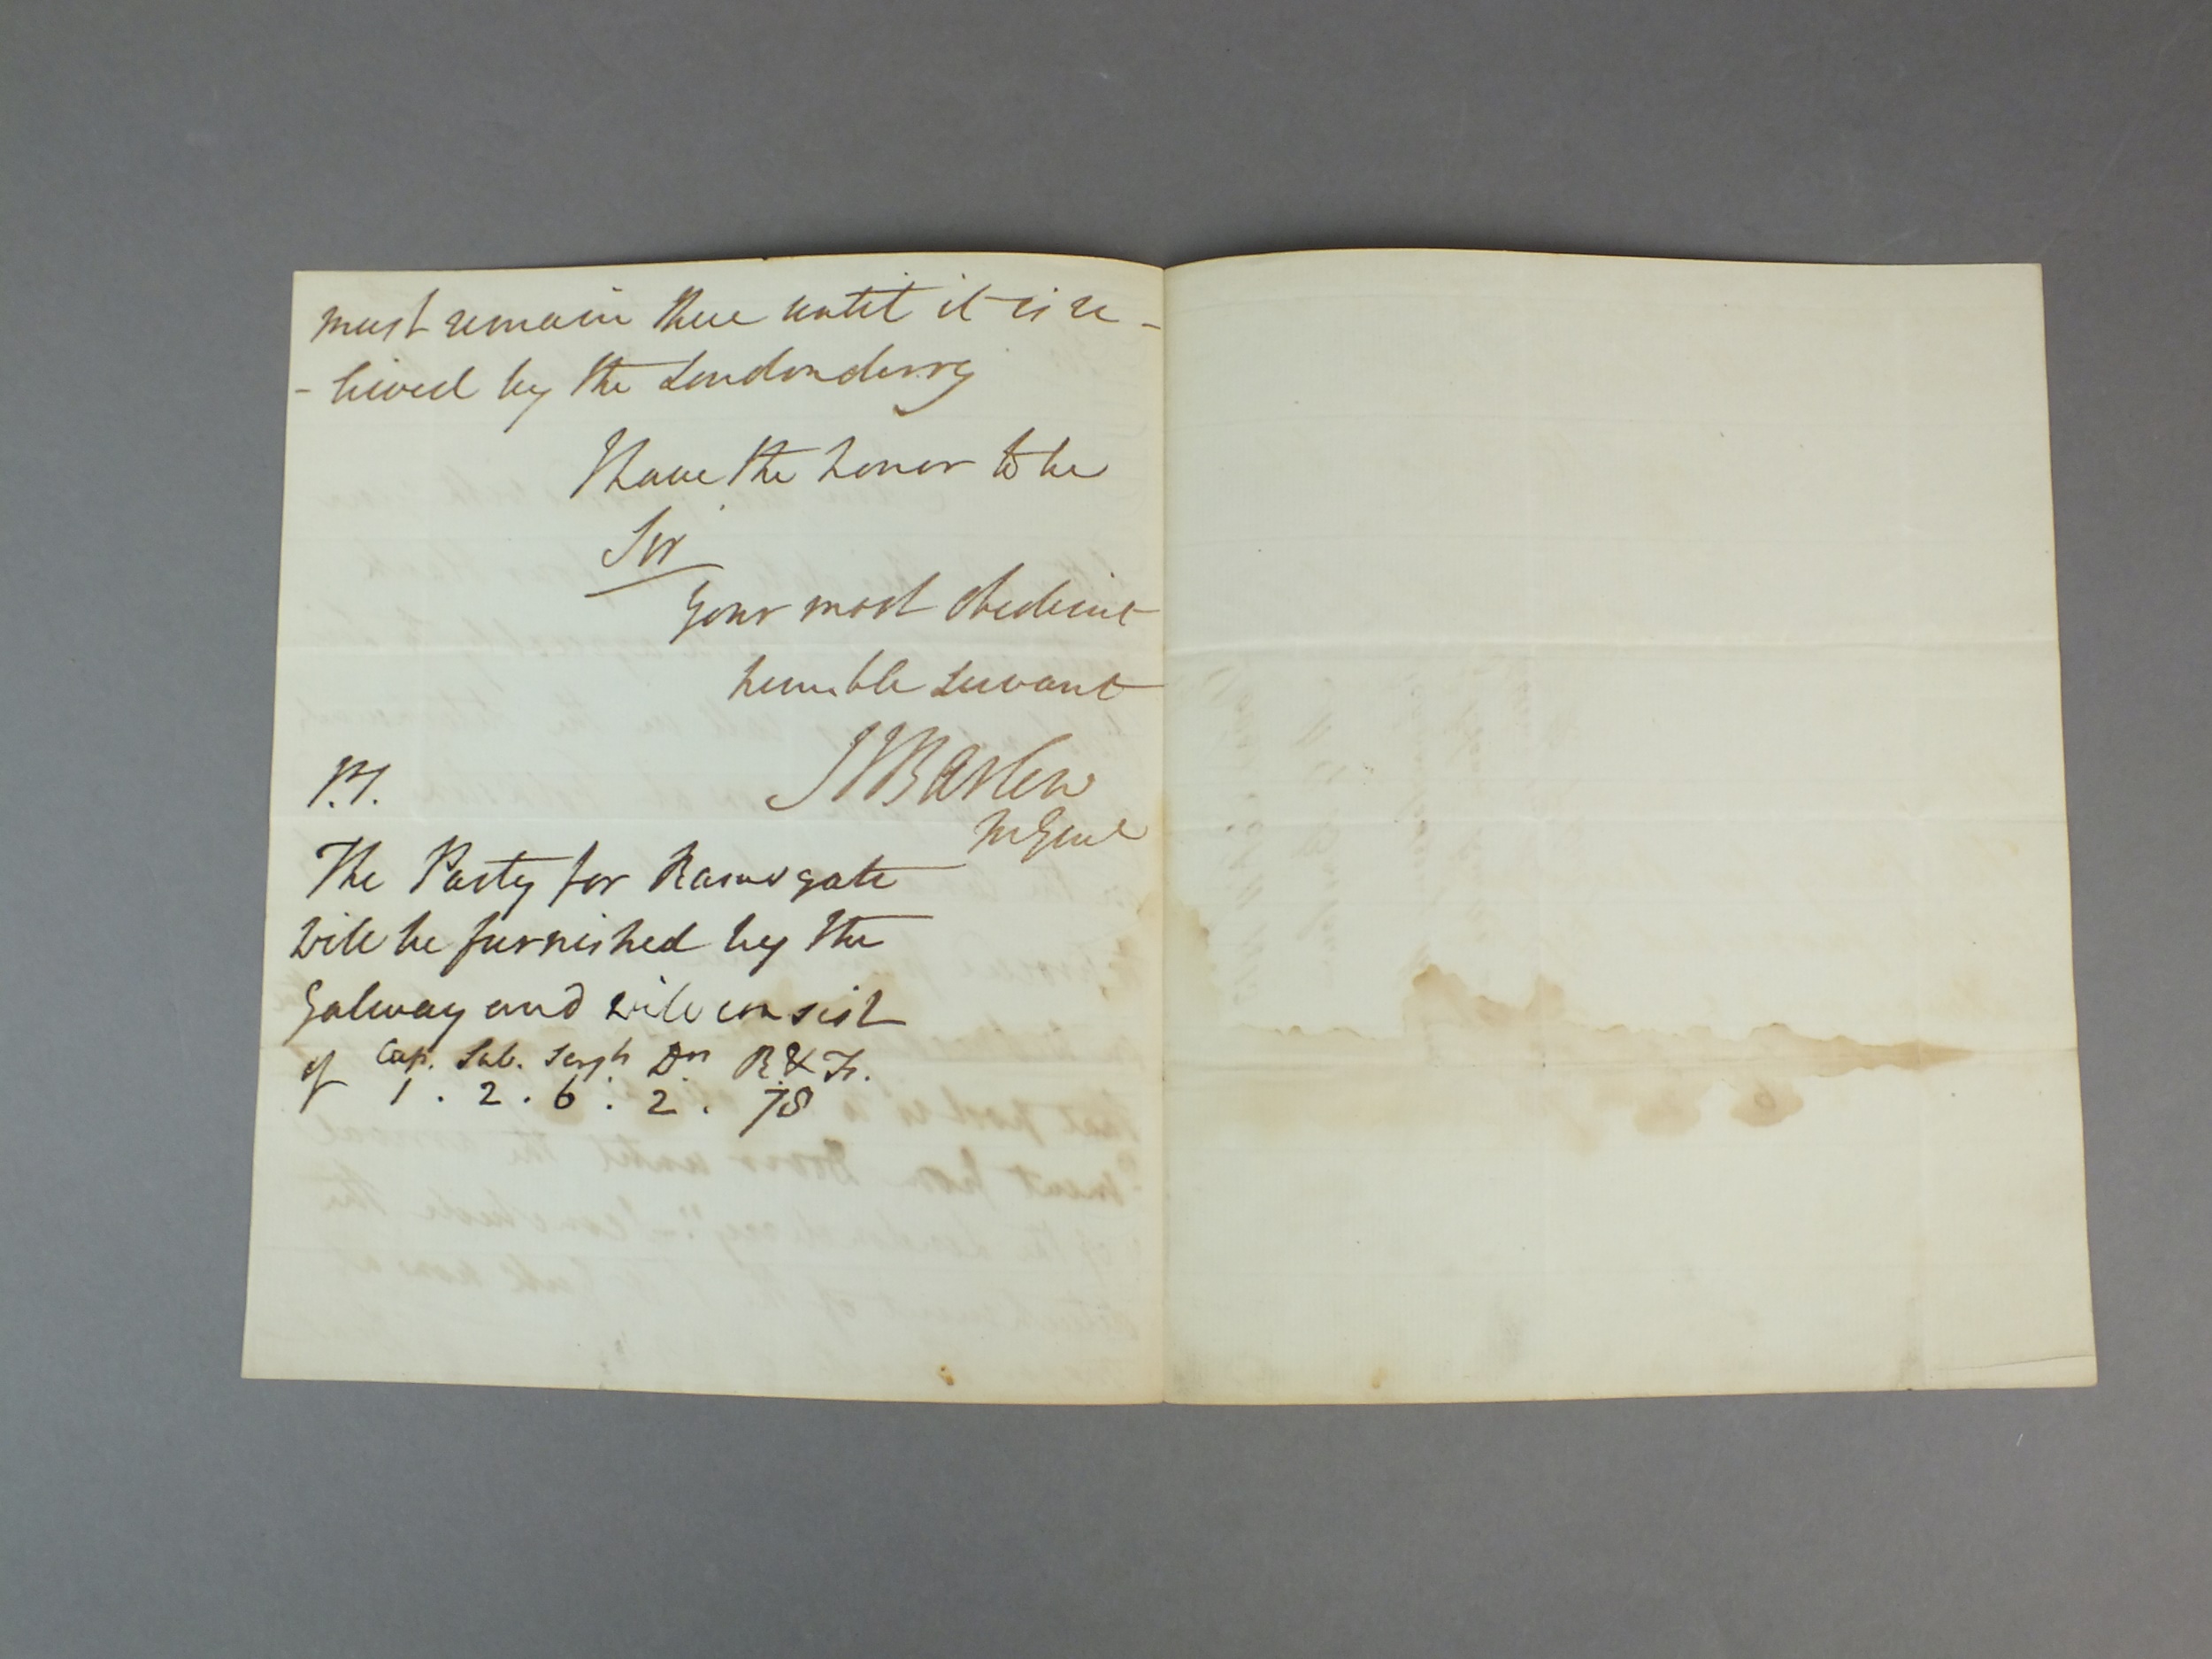 must remain there until it is re-
-lieved by the Londonderry
I have the honor to be
Sir
Your most obedient
humble servant
Barlow
M Genl
P.S.
The Party for Ramsgate
will be furnished by the
Galway and will consist
of Cap. Sub. Serjts Drs R & F.
1 . 2 . 6 . 2 . 78